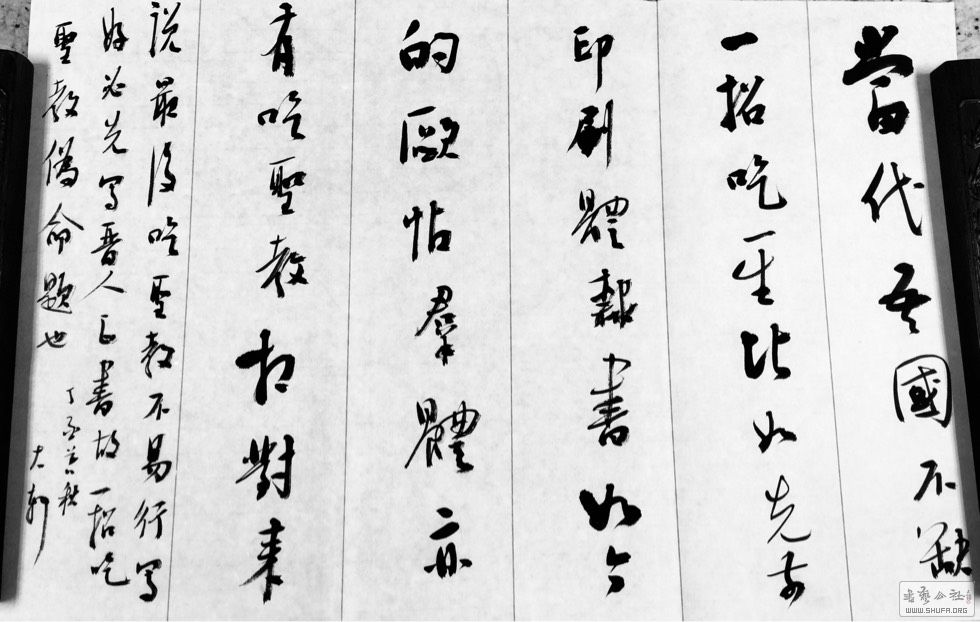 當代吾國不缺
一招吃一生比如先前
印刷體隸書如今
的歐帖羣體亦
有吃聖教相對來
説最後吃聖教不易行寫
好必先寫晉人正書故一招吃
聖教偽命題也
丁酉初秋
大新
书艺公社
WWW.SHUFA.ORG